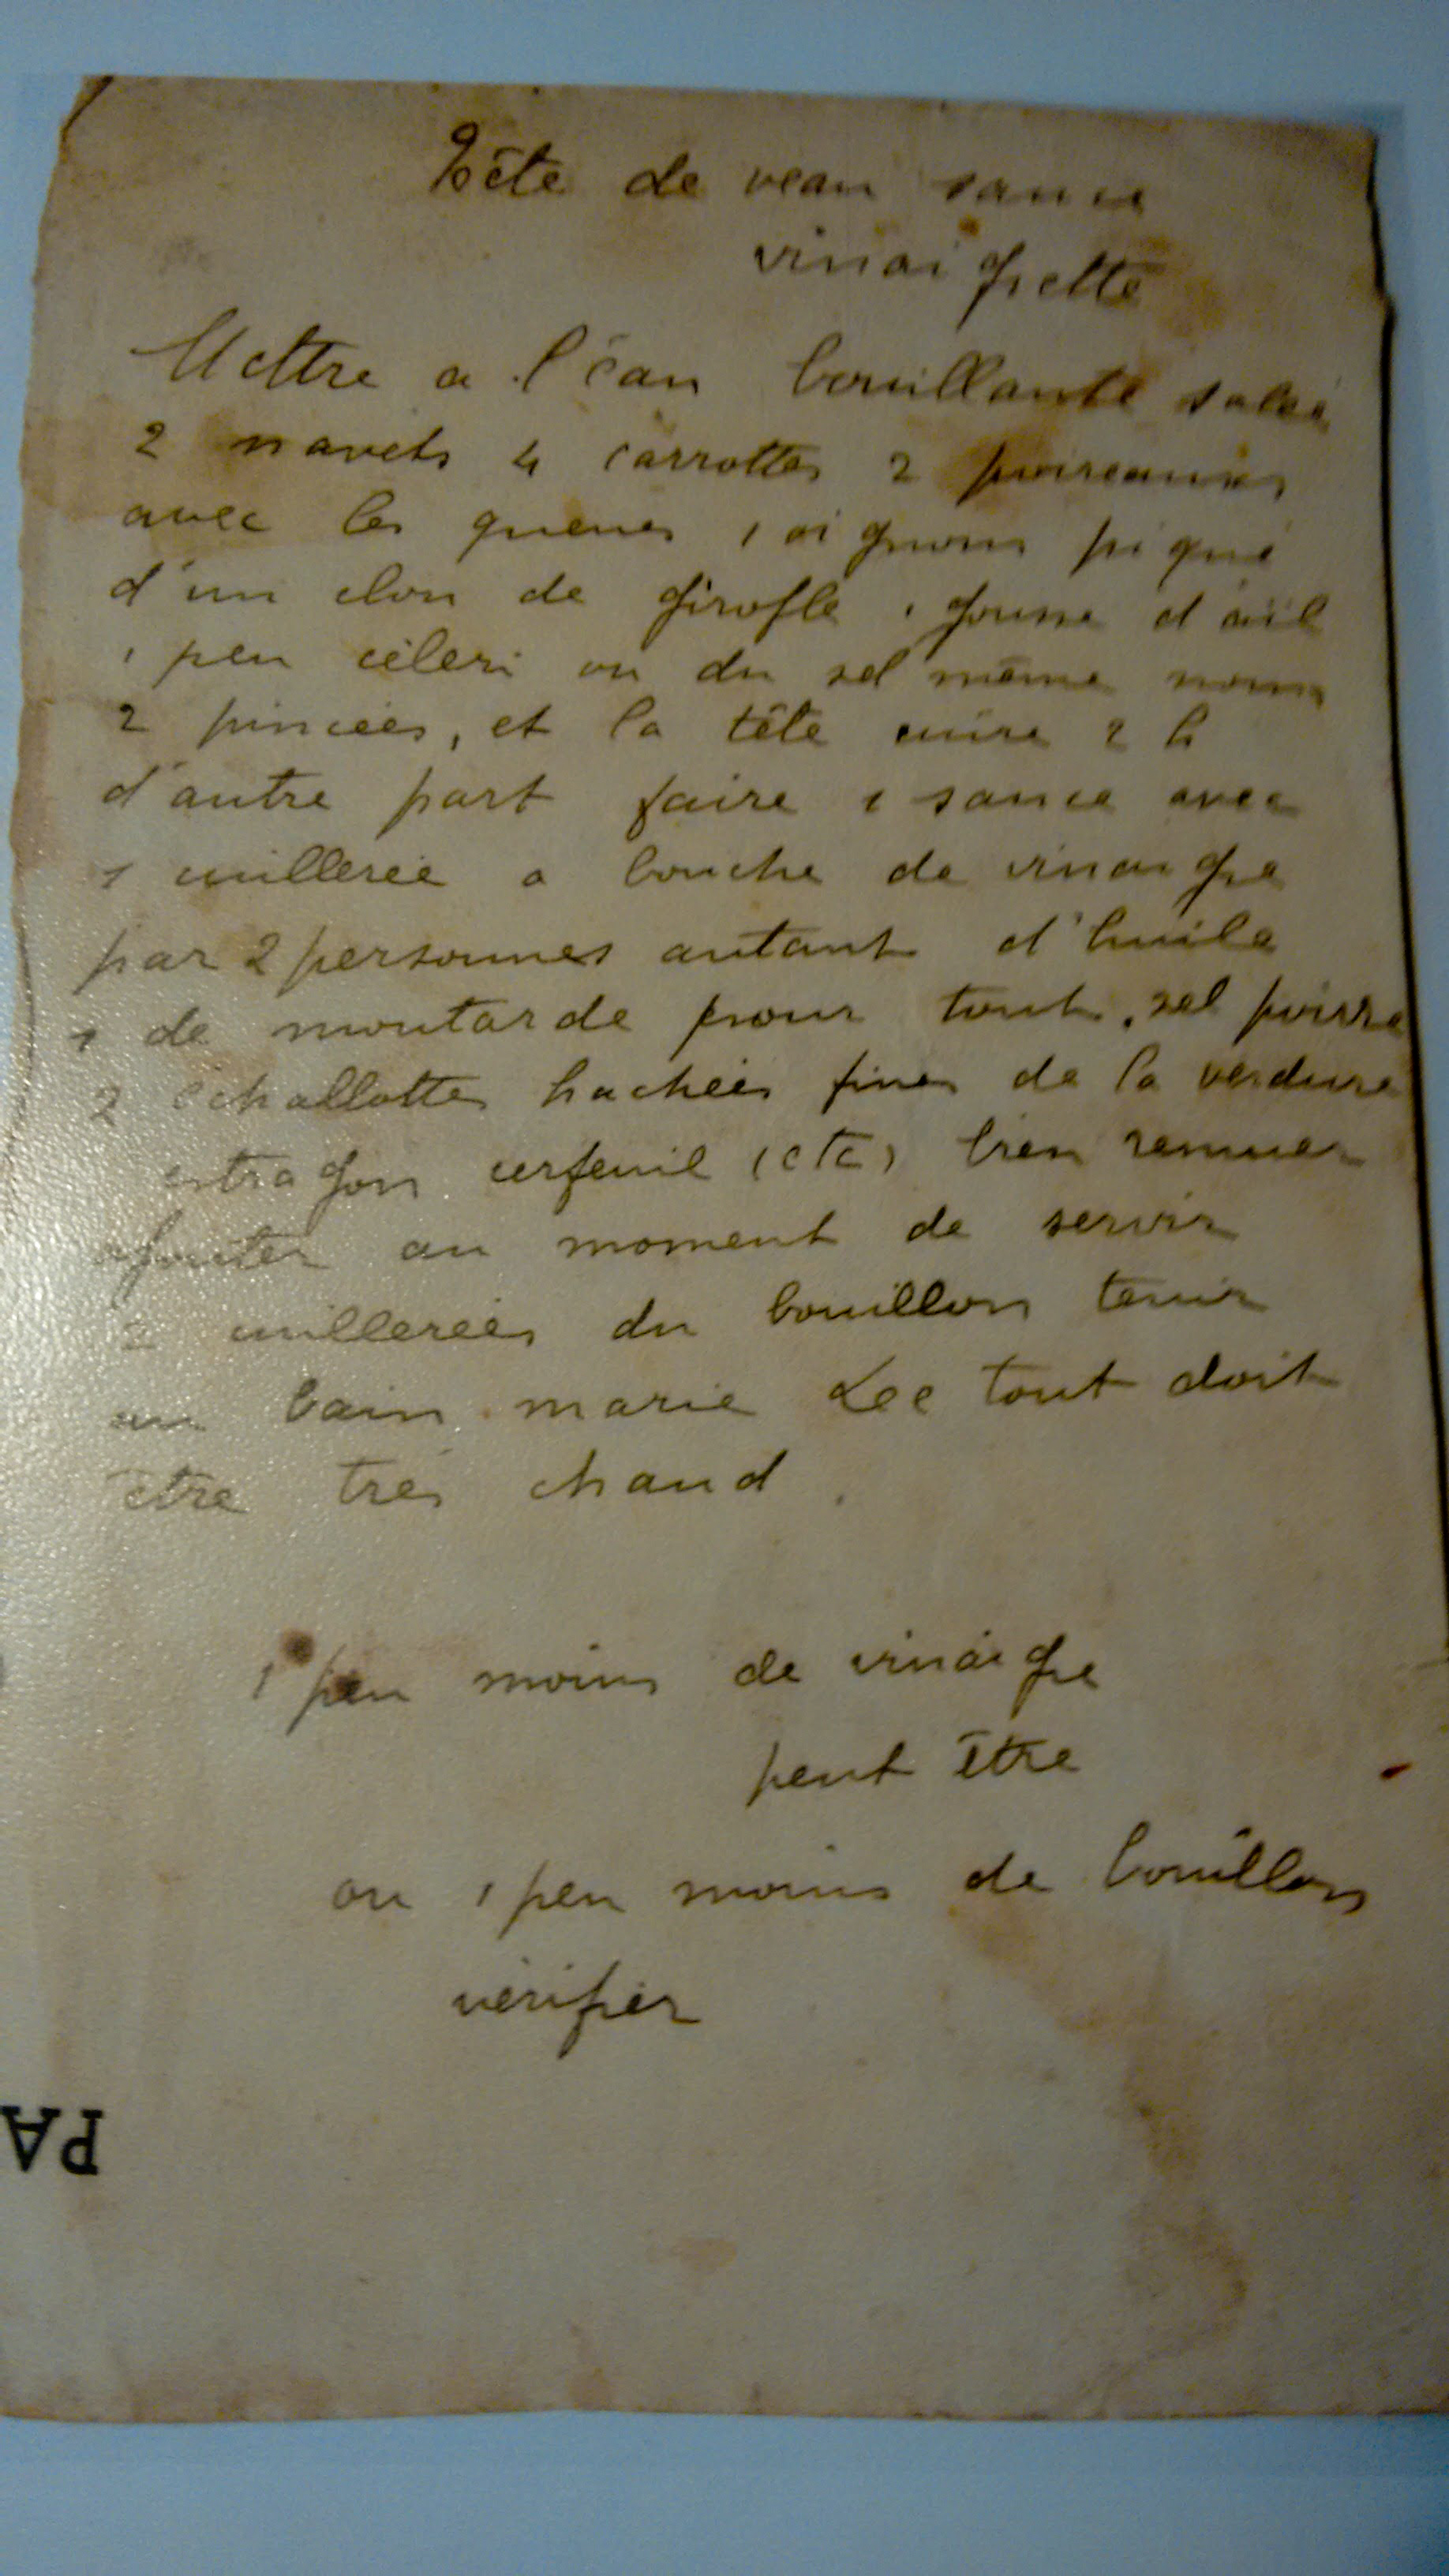 Tête de veau sauce
vinaigrette
Mettre a l'éau bouillante salée
2 navets 4 carrottes 2 poireauxs
avec les queues 1 oignons piqué
d'un clou de girofle 1 gousse d'ail
1 peu céleri ou du sel même noms
2 pincées, et la tête cuire 2 h
d'autre part faire 1 sauce avec
1 cuillerée a bouche de vinaigre
par 2 personnes autant d'huile
1 de moutarde pour tout, sel poivre
2 échallottes hachées fines de la verdure
estragon cerfeuil (etc) bien remuer
ajouter au moment de servir
2 cuillerées du bouillon tenir
au bain marie Lee tout doit
être très chaud.
1 peu moins de vinaigre
peut être
ou 1 peu moins de bouillon
vérifier
PA